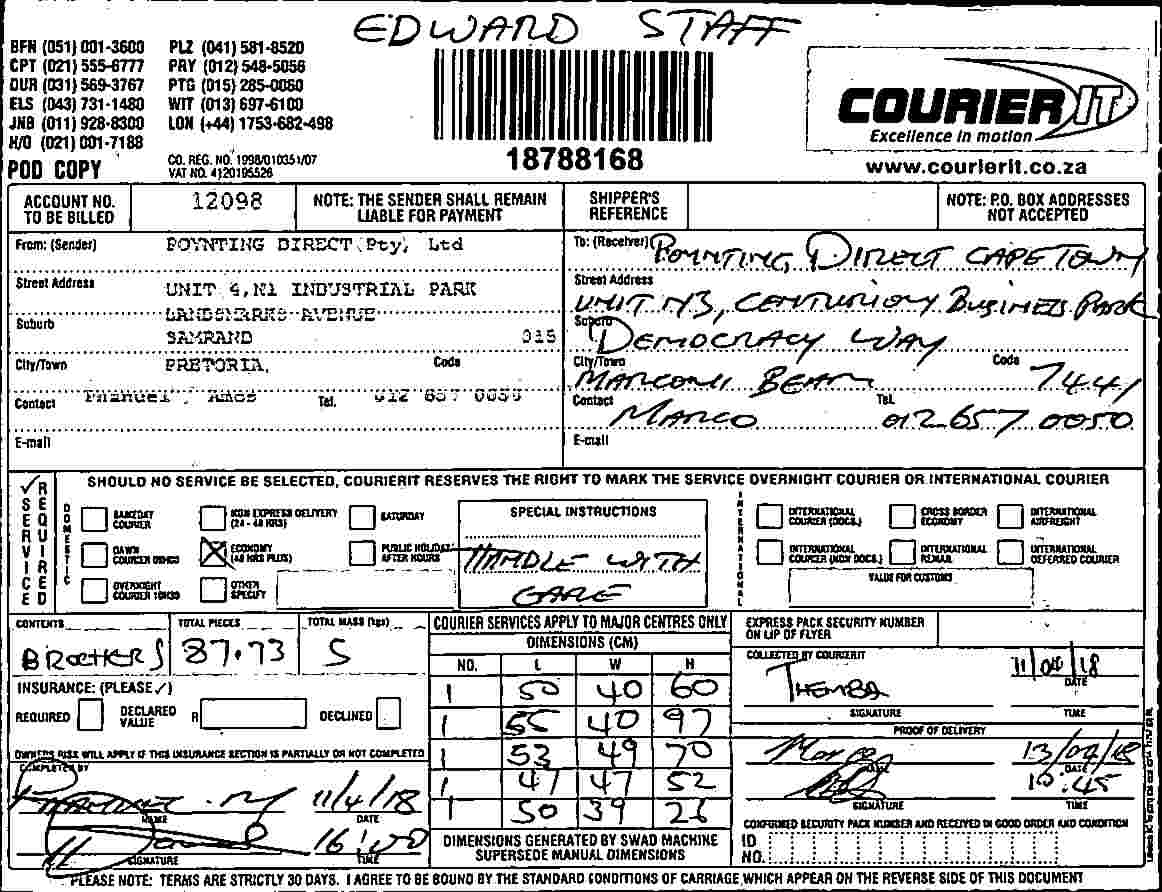 EDWARD STAFF
BFN (051) 001-3600 PLZ (041) 581-8520
CPT (021) 555-6777 PRY (012) 548-5056
DUR (031) 569-3767 PTG (015) 285-0060
ELS (043) 731-1480 WIT (013) 697-6100
JNB (011) 928-8300 LON (+44) 1753-682-498
H/O (021) 001-7188
POD COPY
CO. REG. NO. 1998/010351/07
VAT NO. 4120195526
18788168
COURIER IT
Excellence in motion
www.courierit.co.za
ACCOUNT NO. TO BE BILLED 12098
NOTE: THE SENDER SHALL REMAIN LIABLE FOR PAYMENT
SHIPPER'S REFERENCE
NOTE: P.O. BOX ADDRESSES NOT ACCEPTED
From: (Sender) POYNTING DIRECT (Pty) Ltd
Street Address UNIT 4, N1 INDUSTRIAL PARK
LANDSMARKS AVENUE
Suburb SAMRAND
City/Town PRETORIA, Code
Contact Tel. 012 657 0050
E-mail
To: (Receiver) POYNTING DIRECT CAPE TOWN
Street Address UNIT N3, CENTURION BUSINESS PARK
Suburb DEMOCRACY WAY
City/Town MARCONI BEAM Code 7441
Contact MARCO Tel. 012 657 0050
E-mail
SHOULD NO SERVICE BE SELECTED, COURIERIT RESERVES THE RIGHT TO MARK THE SERVICE OVERNIGHT COURIER OR INTERNATIONAL COURIER
SERVICE REQUIRED
DOMESTIC
SAMEDAY COURIER
NON EXPRESS DELIVERY (24 - 48 HRS)
SATURDAY
DAWN COURIER 09H05
ECONOMY (48 HRS PLUS)
PUBLIC HOLIDAY AFTER HOURS
OVERNIGHT COURIER 10H30
OTHER SPECIFY
SPECIAL INSTRUCTIONS
HANDLE WITH CARE
INTERNATIONAL
INTERNATIONAL COURIER (DOCS.)
CROSS BORDER ECONOMY
INTERNATIONAL AIRFREIGHT
INTERNATIONAL COURIER (NON DOCS.)
INTERNATIONAL REMAIL
INTERNATIONAL DEFERRED COURIER
VALUE FOR CUSTOMS
CONTENTS
TOTAL PIECES 87.73
TOTAL MASS (kgs) 5
COURIER SERVICES APPLY TO MAJOR CENTRES ONLY
DIMENSIONS (CM)
NO. L W H
1 50 40 60
1 55 40 97
1 53 49 70
1 47 47 52
1 50 39 26
DIMENSIONS GENERATED BY SWAD MACHINE SUPERSEDE MANUAL DIMENSIONS
INSURANCE: (PLEASE ✓)
REQUIRED DECLARED VALUE R DECLINED
OWNERS RISK WILL APPLY IF THIS INSURANCE SECTION IS PARTIALLY OR NOT COMPLETED
COMPLETED BY
NAME
11/4/18
DATE
SIGNATURE
16:00
TIME
EXPRESS PACK SECURITY NUMBER ON LIP OF FLYER
COLLECTED BY COURIERIT
THEMBA
SIGNATURE
11/04/18
DATE
TIME
PROOF OF DELIVERY
13/04/18
DATE
10:45
SIGNATURE
TIME
CONFIRMED SECURITY PACK NUMBER AND RECEIVED IN GOOD ORDER AND CONDITION
ID NO.
PLEASE NOTE: TERMS ARE STRICTLY 30 DAYS. I AGREE TO BE BOUND BY THE STANDARD CONDITIONS OF CARRIAGE, WHICH APPEAR ON THE REVERSE SIDE OF THIS DOCUMENT